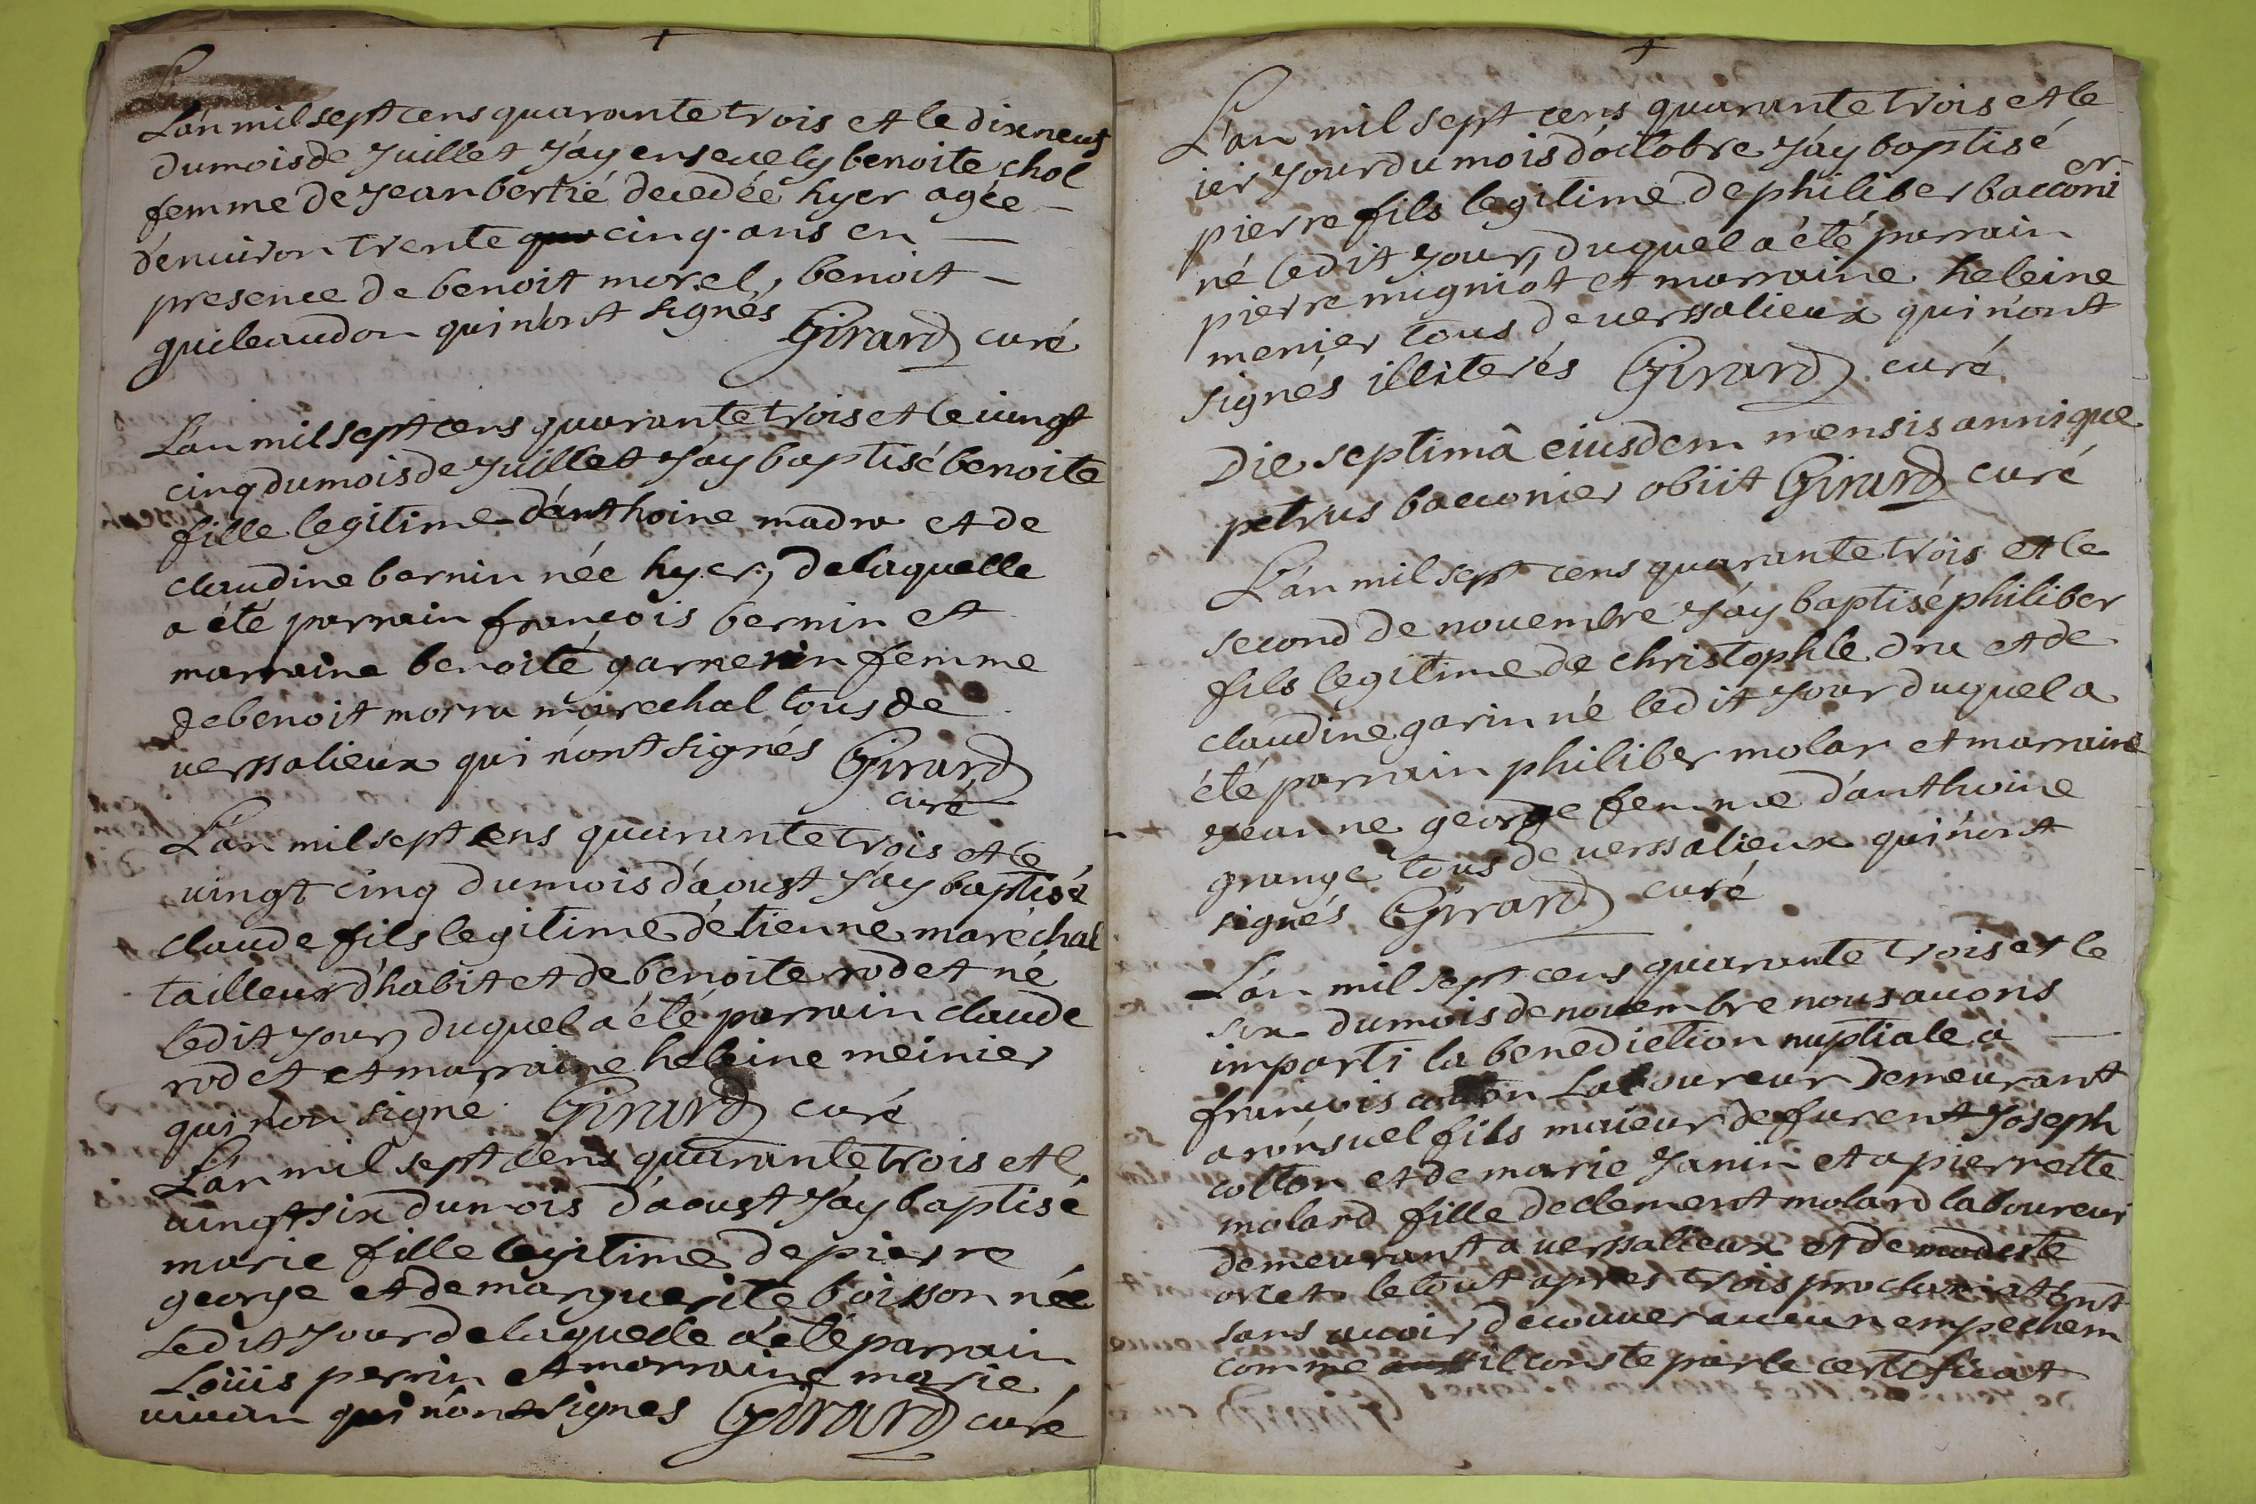 L'an mil sept cens quarante trois et le dixneuf
du mois de Juillet J'ay ensevely benoite chol
femme de Jean bertié decedée hyer agée
d'enuiron trente cinq ans en
presence de benoit morel, benoit
guileaudon qui n'ont signés Girard curé
L'an mil sept cens quarante trois et le vingt
cinq du mois de Juillet J'ay baptisé benoite
fille legitime d'anthoine madra et de
claudine bernin née hyer, de laquelle
a été parrain françois bernin et
marraine benoite garnerin femme
de benoit morra marechal tous de
uerssalieux qui n'ont signés Girard
curé
L'an mil sept cens quarante trois et le
uingt cinq du mois d'aoust J'ay baptisé
claude fils legitime d'etienne maréchal
tailleur d'habit et de benoite rodet né
ledit Jour, duquel a été parrain claude
rodet et marraine heleine meinier
qui n'on signé Girard curé
L'an mil sept cens quarante trois et l
uingt six du mois d'aoust J'ay baptisé
marie fille legitime de pierre
george et de marguerite boisson née
Ledit Jour de laquelle a été parrain
Loüis perrin et marraine marie
uiuian qui n'ont signes Girard curé
L'an mil sept cens quarante trois et le
ier Jour du mois d'octobre J'ay baptisé
er
pierre fils legitime de philiber bacconi
né ledit Jour, duquel a été parrain
pierre migniot et marraine heleine
menier tous de uerssalieux qui n'ont
signés illiterés Girard curé
Die septimâ eiusdem mensis annique
petrus bacconier obiit Girard curé
L'an mil sept cens quarante trois et le
second de nouembre J'ay baptisé philiber
fils legitime de christophle dru et de
claudine garin né ledit Jour duquel a
été parrain philiber molar et marraine
Jeanne george femme d'anthoine
grange tous de uerssalieux qui n'ont
signés Girard curé
L'an mil sept cens quarante trois et le
six du mois de nouembre nous auons
imparti la benediction nuptiale a
francois cotton Laboureur Demeurant
a ronsuel fils mineur de furent Joseph
cotton et de marie Janin et a pierrette
molard fille de clement molard laboureur
demeurant a uerssalieux et de modeste
oriet le tout apres trois proclamat
sans auoir decouuer aucun empechem ent
comme il conste par le certificat